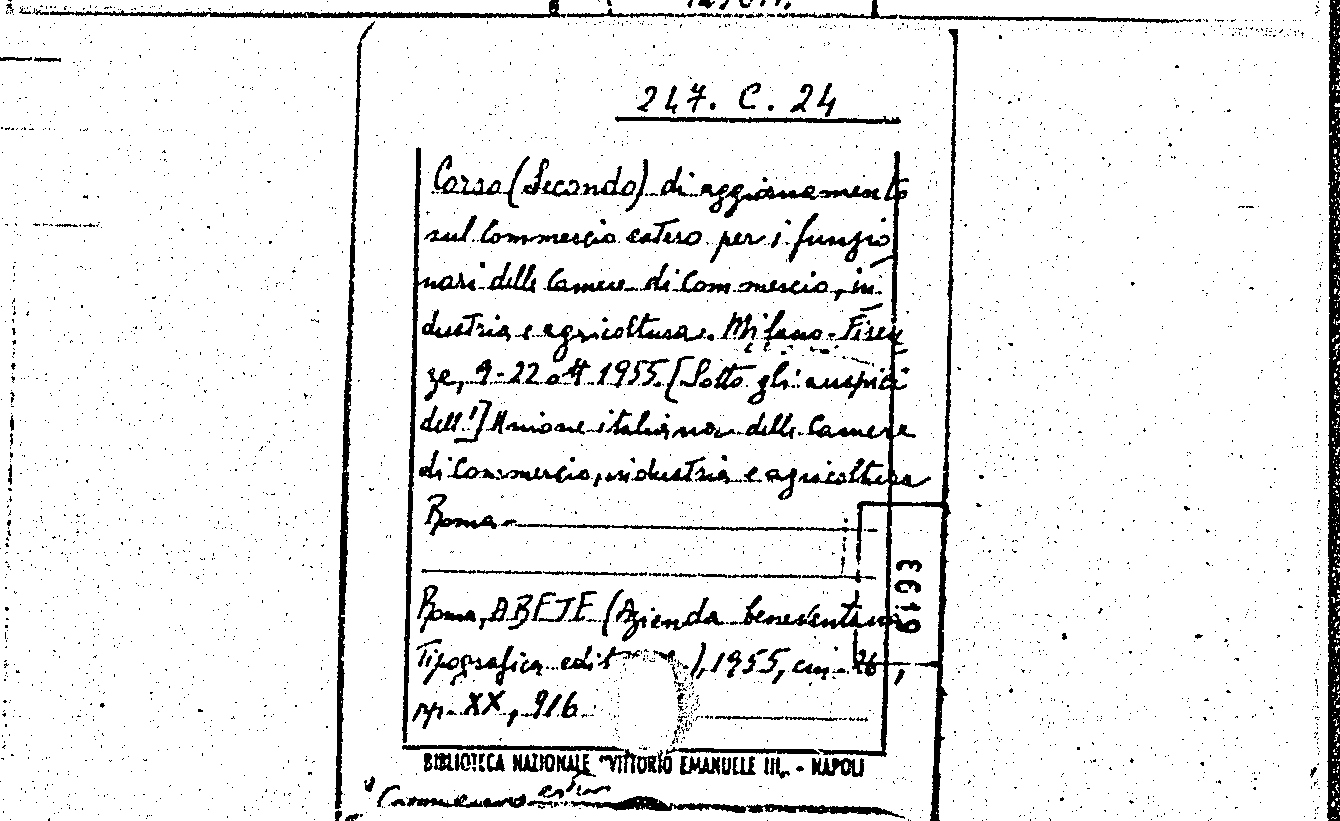 247. C. 24
Corso (Secondo) di aggiornamento
sul Commercio estero per i funzio
nari delle Camere di Commercio, in
dustria e agricoltura. Milano-Firen
ze, 9-22 ott 1955. [Sotto gli auspici
dell'] Unione italiana delle Camere
di Commercio, industria e agricoltura
Roma-
Roma, ABETE (Azienda beneventana
Tipografica edit ), 1955, cm. 26,
pp. XX, 916
6193
BIBLIOTECA NAZIONALE "VITTORIO EMANUELE III„ - NAPOLI
Commercio estero